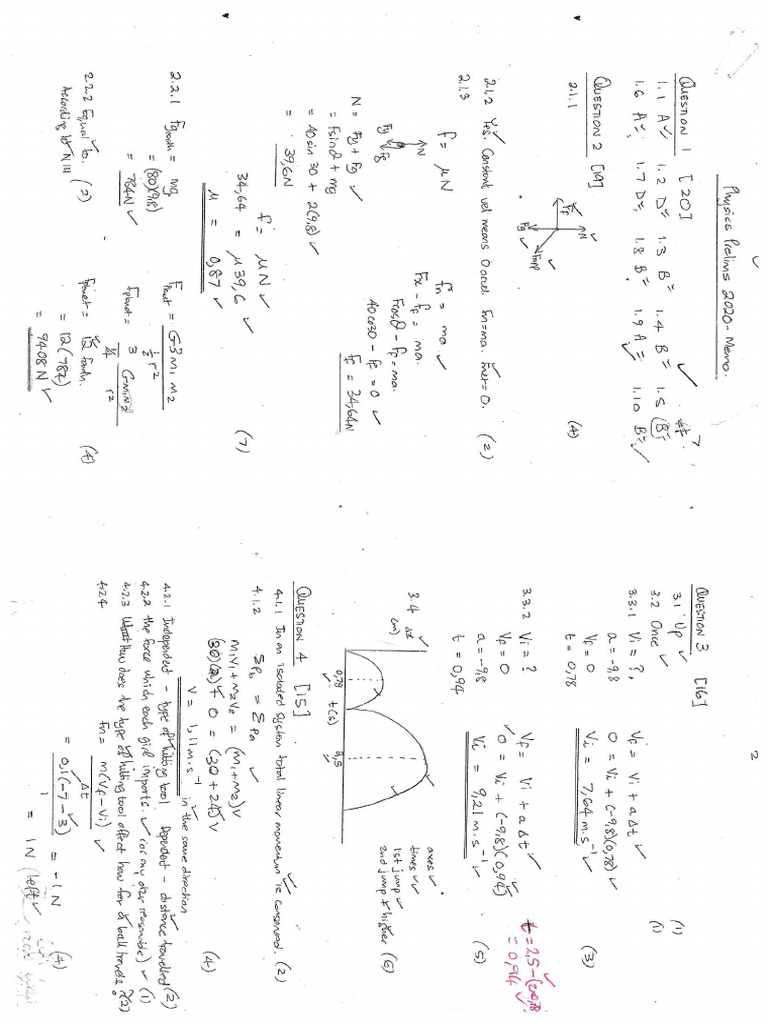 Physics Prelims 2020 - Memo.
QUESTION 1 [20]
1.1 A 1.2 D 1.3 B 1.4 B 1.5 (B)
1.6 A 1.7 D 1.8 B 1.9 A 1.10 B
QUESTION 2 [19]
2.1.1
N
Ff
Fapp
Fg
(4)
2.1.2 Yes. Constant vel means 0 accel. Fn=ma. Fnet=0. (2)
2.1.3
f = μN
N
Fy
Fg
N = Fy + Fg
= Fsinθ + mg
= 40 sin 30 + 2(9,8)
= 39,6N
Fn = ma
Fx - ff = ma.
Fcosθ - ff = ma.
40cos30 - ff = 0
ff = 34,64N
f = μN
34,64 = μ39,6
μ = 0,87
(7)
2.2.1 Fgearth = mg
= (80)(9,8)
= 784N
Fplanet = G3m1 m2
½ r²
Fplanet = 3 Gm1m2
¼ r²
2.2.2 Equal to. (2)
According to N III
Fplanet = 12 Fearth.
= 12(784)
= 9408 N
(4)
2
QUESTION 3 [16]
3.1 Up (1)
3.2 Once (1)
3.3.1 Vi = ?,
a = -9,8
Vf = 0
t = 0,78
Vf = Vi + aΔt
0 = Vi + (-9,8)(0,78)
Vi = 7,64 m.s⁻¹
(3)
3.3.2 Vi = ?
Vf = 0
a = -9,8
t = 0,94
Vf = Vi + aΔt
0 = Vi + (-9,8)(0,94)
Vi = 9,21 m.s⁻¹
(5)
= 0,94
3.4 Δx
(m)
0,78
t(s)
2,5
axes
times
1st jump
2nd jump higher
(6)
QUESTION 4 [15]
4.1.1 In an isolated system total linear momentum is conserved. (2)
4.1.2 Σpb = Σpa
m1v1 + m2v2 = (m1+m2)v
(30)(2) + 0 = (30+24)v
v = 1,11 m.s⁻¹ in the same direction
(4)
4.2.1 Independent - type of hitting tool Dependent - distance travelled (2)
4.2.2 the force which each girl imparts. (or any other reasonable) (1)
4.2.3 How does the type of hitting tool affect how far a ball travels? (2)
4.2.4 Fn = m(Vf - Vi)
Δt
= 0,1(-7-3)
1
= -1N
= 1N (left
(4)